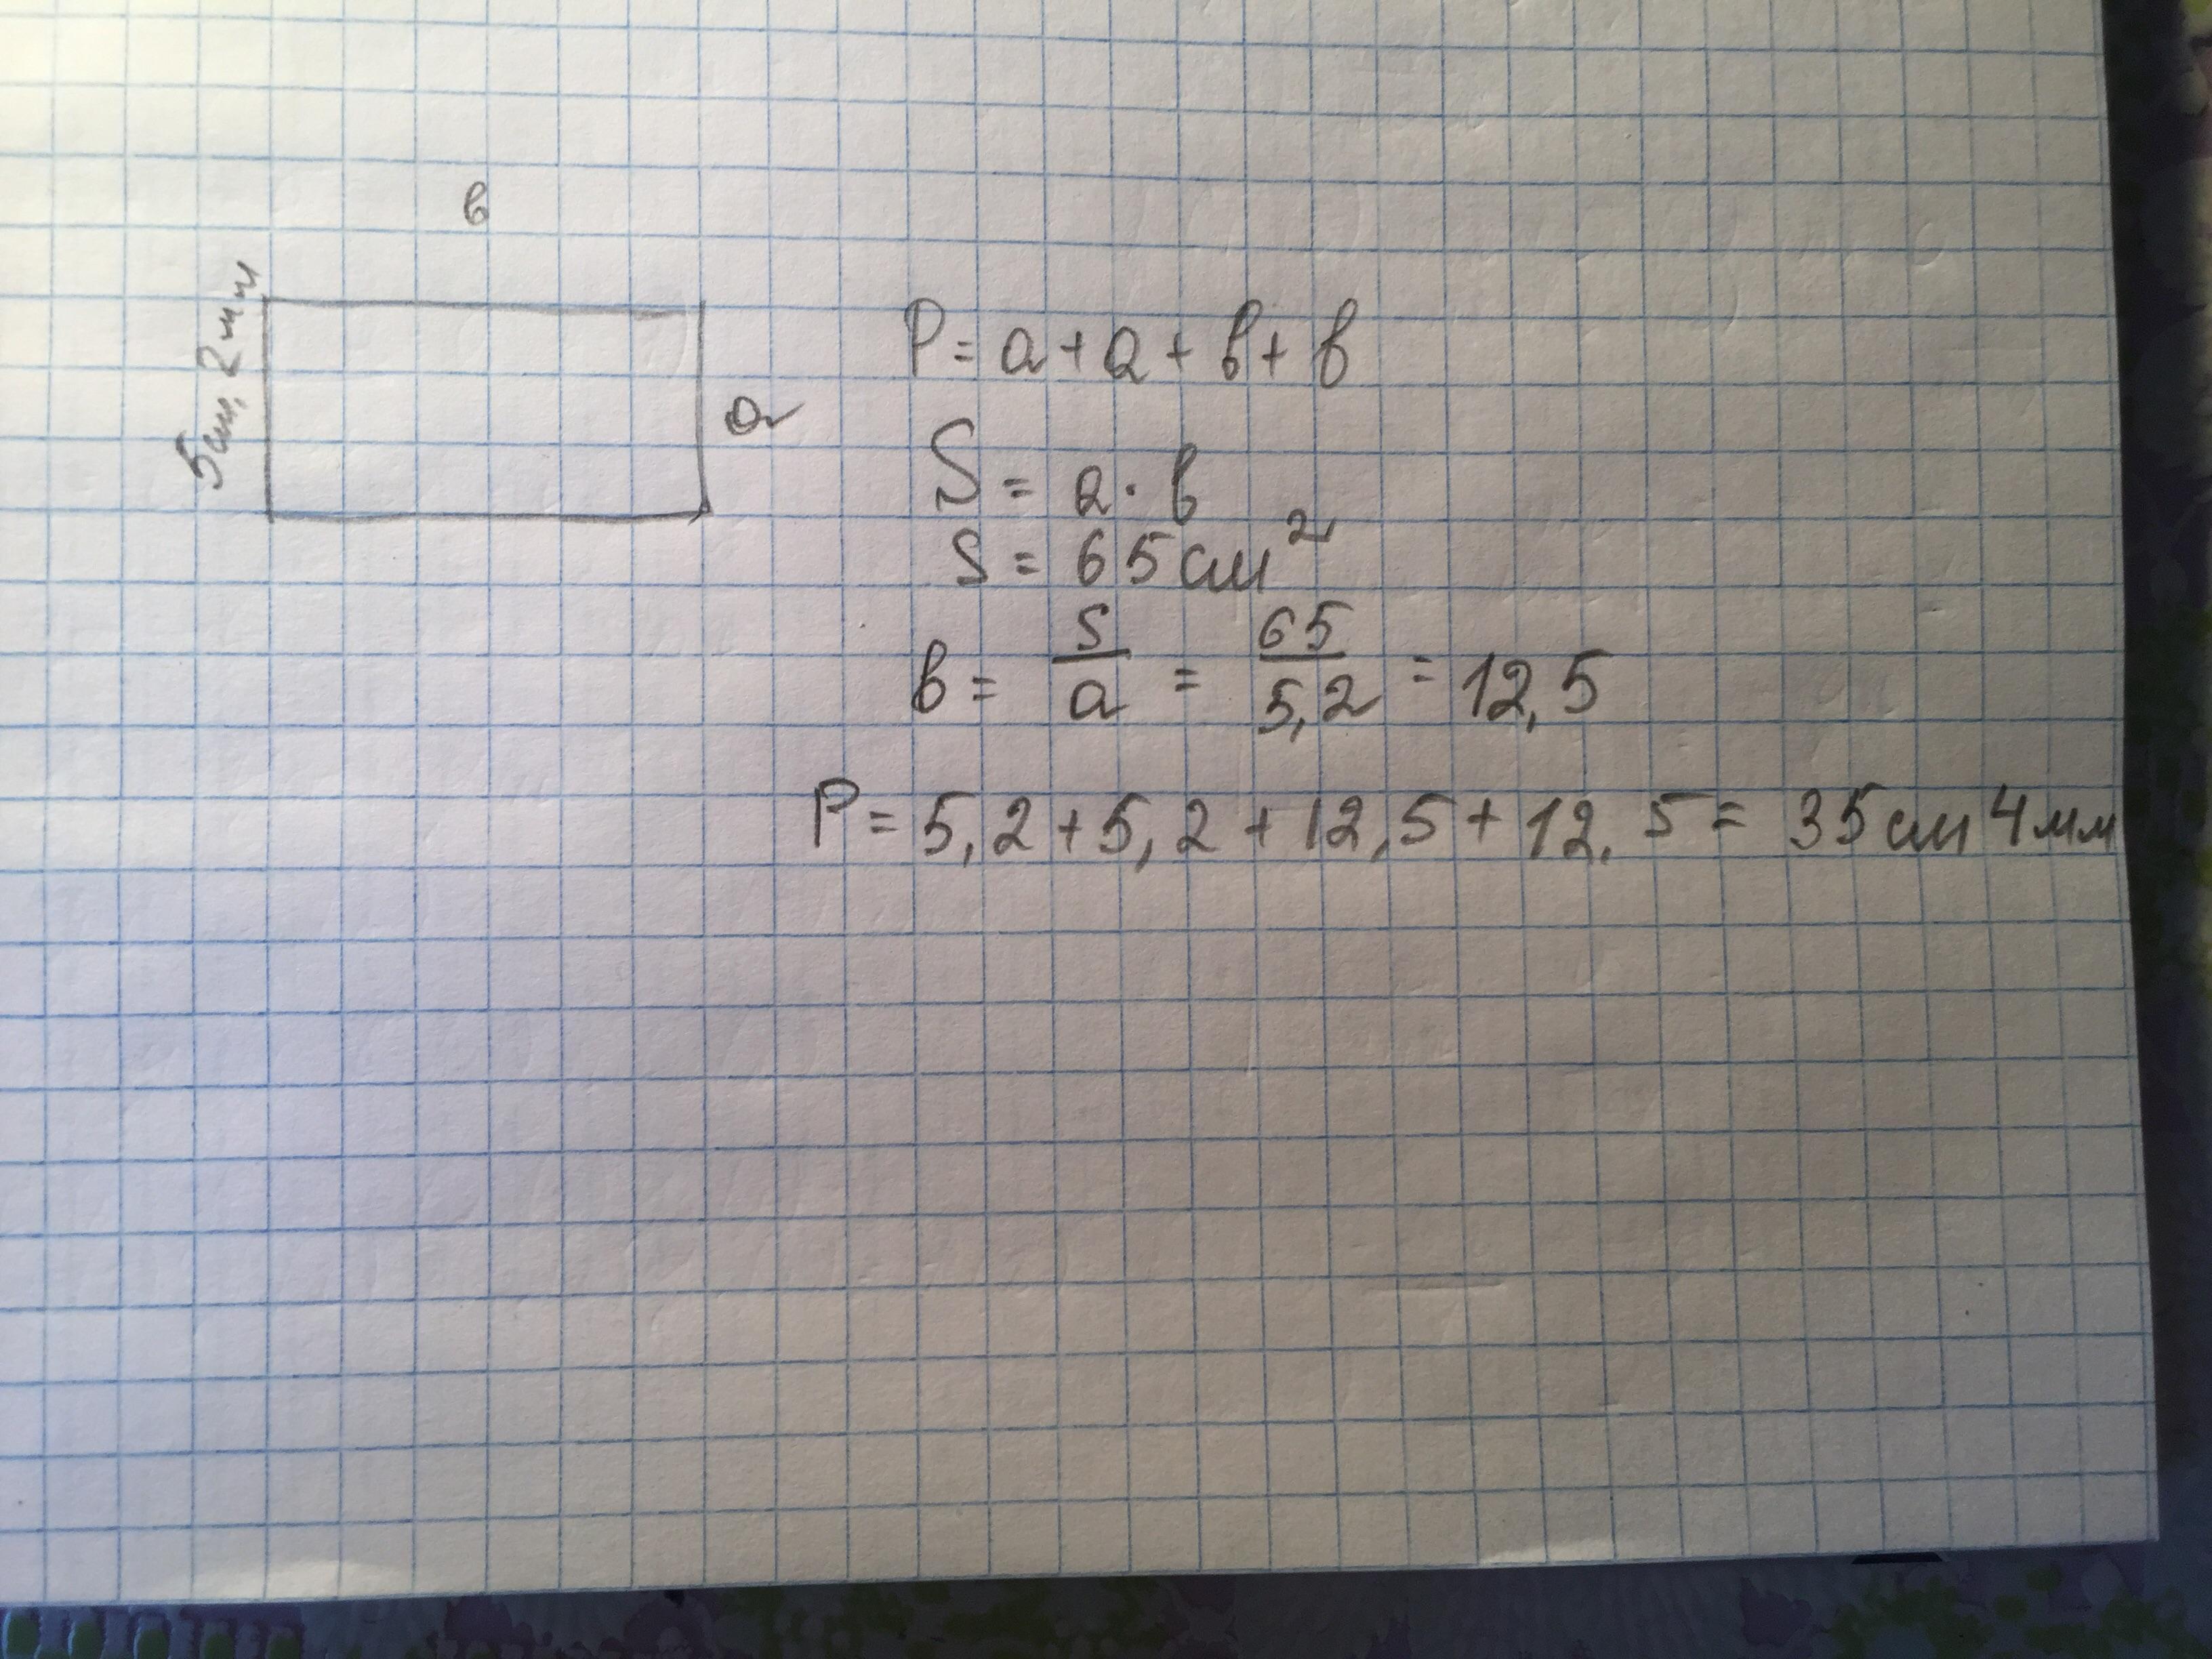 в
5 см, 2 мм
а
P = а + а + в + в
S = а · в
S = 65 см²
в = S/а = 65/5,2 = 12,5
P = 5,2 + 5,2 + 12,5 + 12,5 = 35 см 4 мм